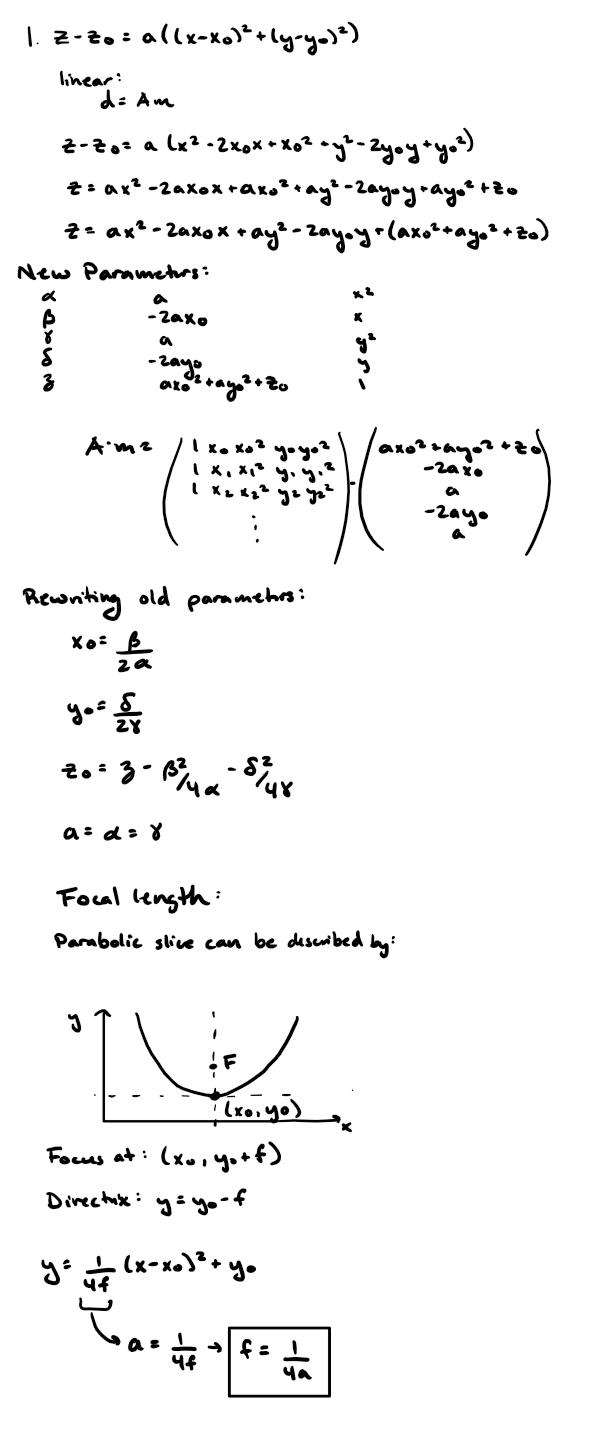 1. z-z₀ = a((x-x₀)²+(y-y₀)²)
linear:
d = Am
z-z₀ = a (x² -2x₀x + x₀² + y² -2y₀y + y₀²)
z = ax² -2ax₀x + ax₀² + ay² -2ay₀y + ay₀² + z₀
z = ax² -2ax₀x + ay² -2ay₀y + (ax₀² + ay₀² + z₀)
New Parameters:
α a x²
β -2ax₀ x
γ a y²
δ -2ay₀ y
ʒ ax₀² + ay₀² + z₀ 1
A·m = ( 1 x₀ x₀² y₀ y₀² ) · ( ax₀² + ay₀² + z₀ )
1 x₁ x₁² y₁ y₁² -2ax₀
1 x₂ x₂² y₂ y₂² a
⋮ -2ay₀
a
Rewriting old parameters:
x₀ = β/2α
y₀ = δ/2γ
z₀ = ʒ - β²/4α - δ²/4γ
a = α = γ
Focal length:
Parabolic slice can be described by:
y
F
(x₀, y₀)
x
Focus at: (x₀, y₀+f)
Directrix: y = y₀-f
y = 1/4f (x-x₀)² + y₀
a = 1/4f → f = 1/4a